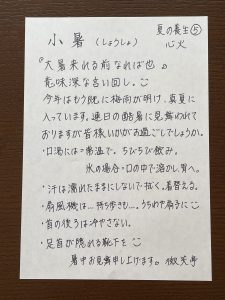 夏の養生⑤
小暑(しょうしょ)
心火
『大暑来れる前なれば也』
意味深な言い回し。
今年はもう既に梅雨が明け、真夏に
入っています。連日の酷暑に見舞われて
おりますが皆様いかがお過ごしでしょうか。
・口湯には…常温で。ちびちび飲み。
氷の場合…口の中で溶かし、胃へ。
・汗は濡れたままにしないで拭く。着替える。
・扇風機は…持ち歩きも…。うちわや扇子に
・首の後ろは冷やさない。
・足首が隠れる靴下を
暑中お見舞申し上げます。微笑亭